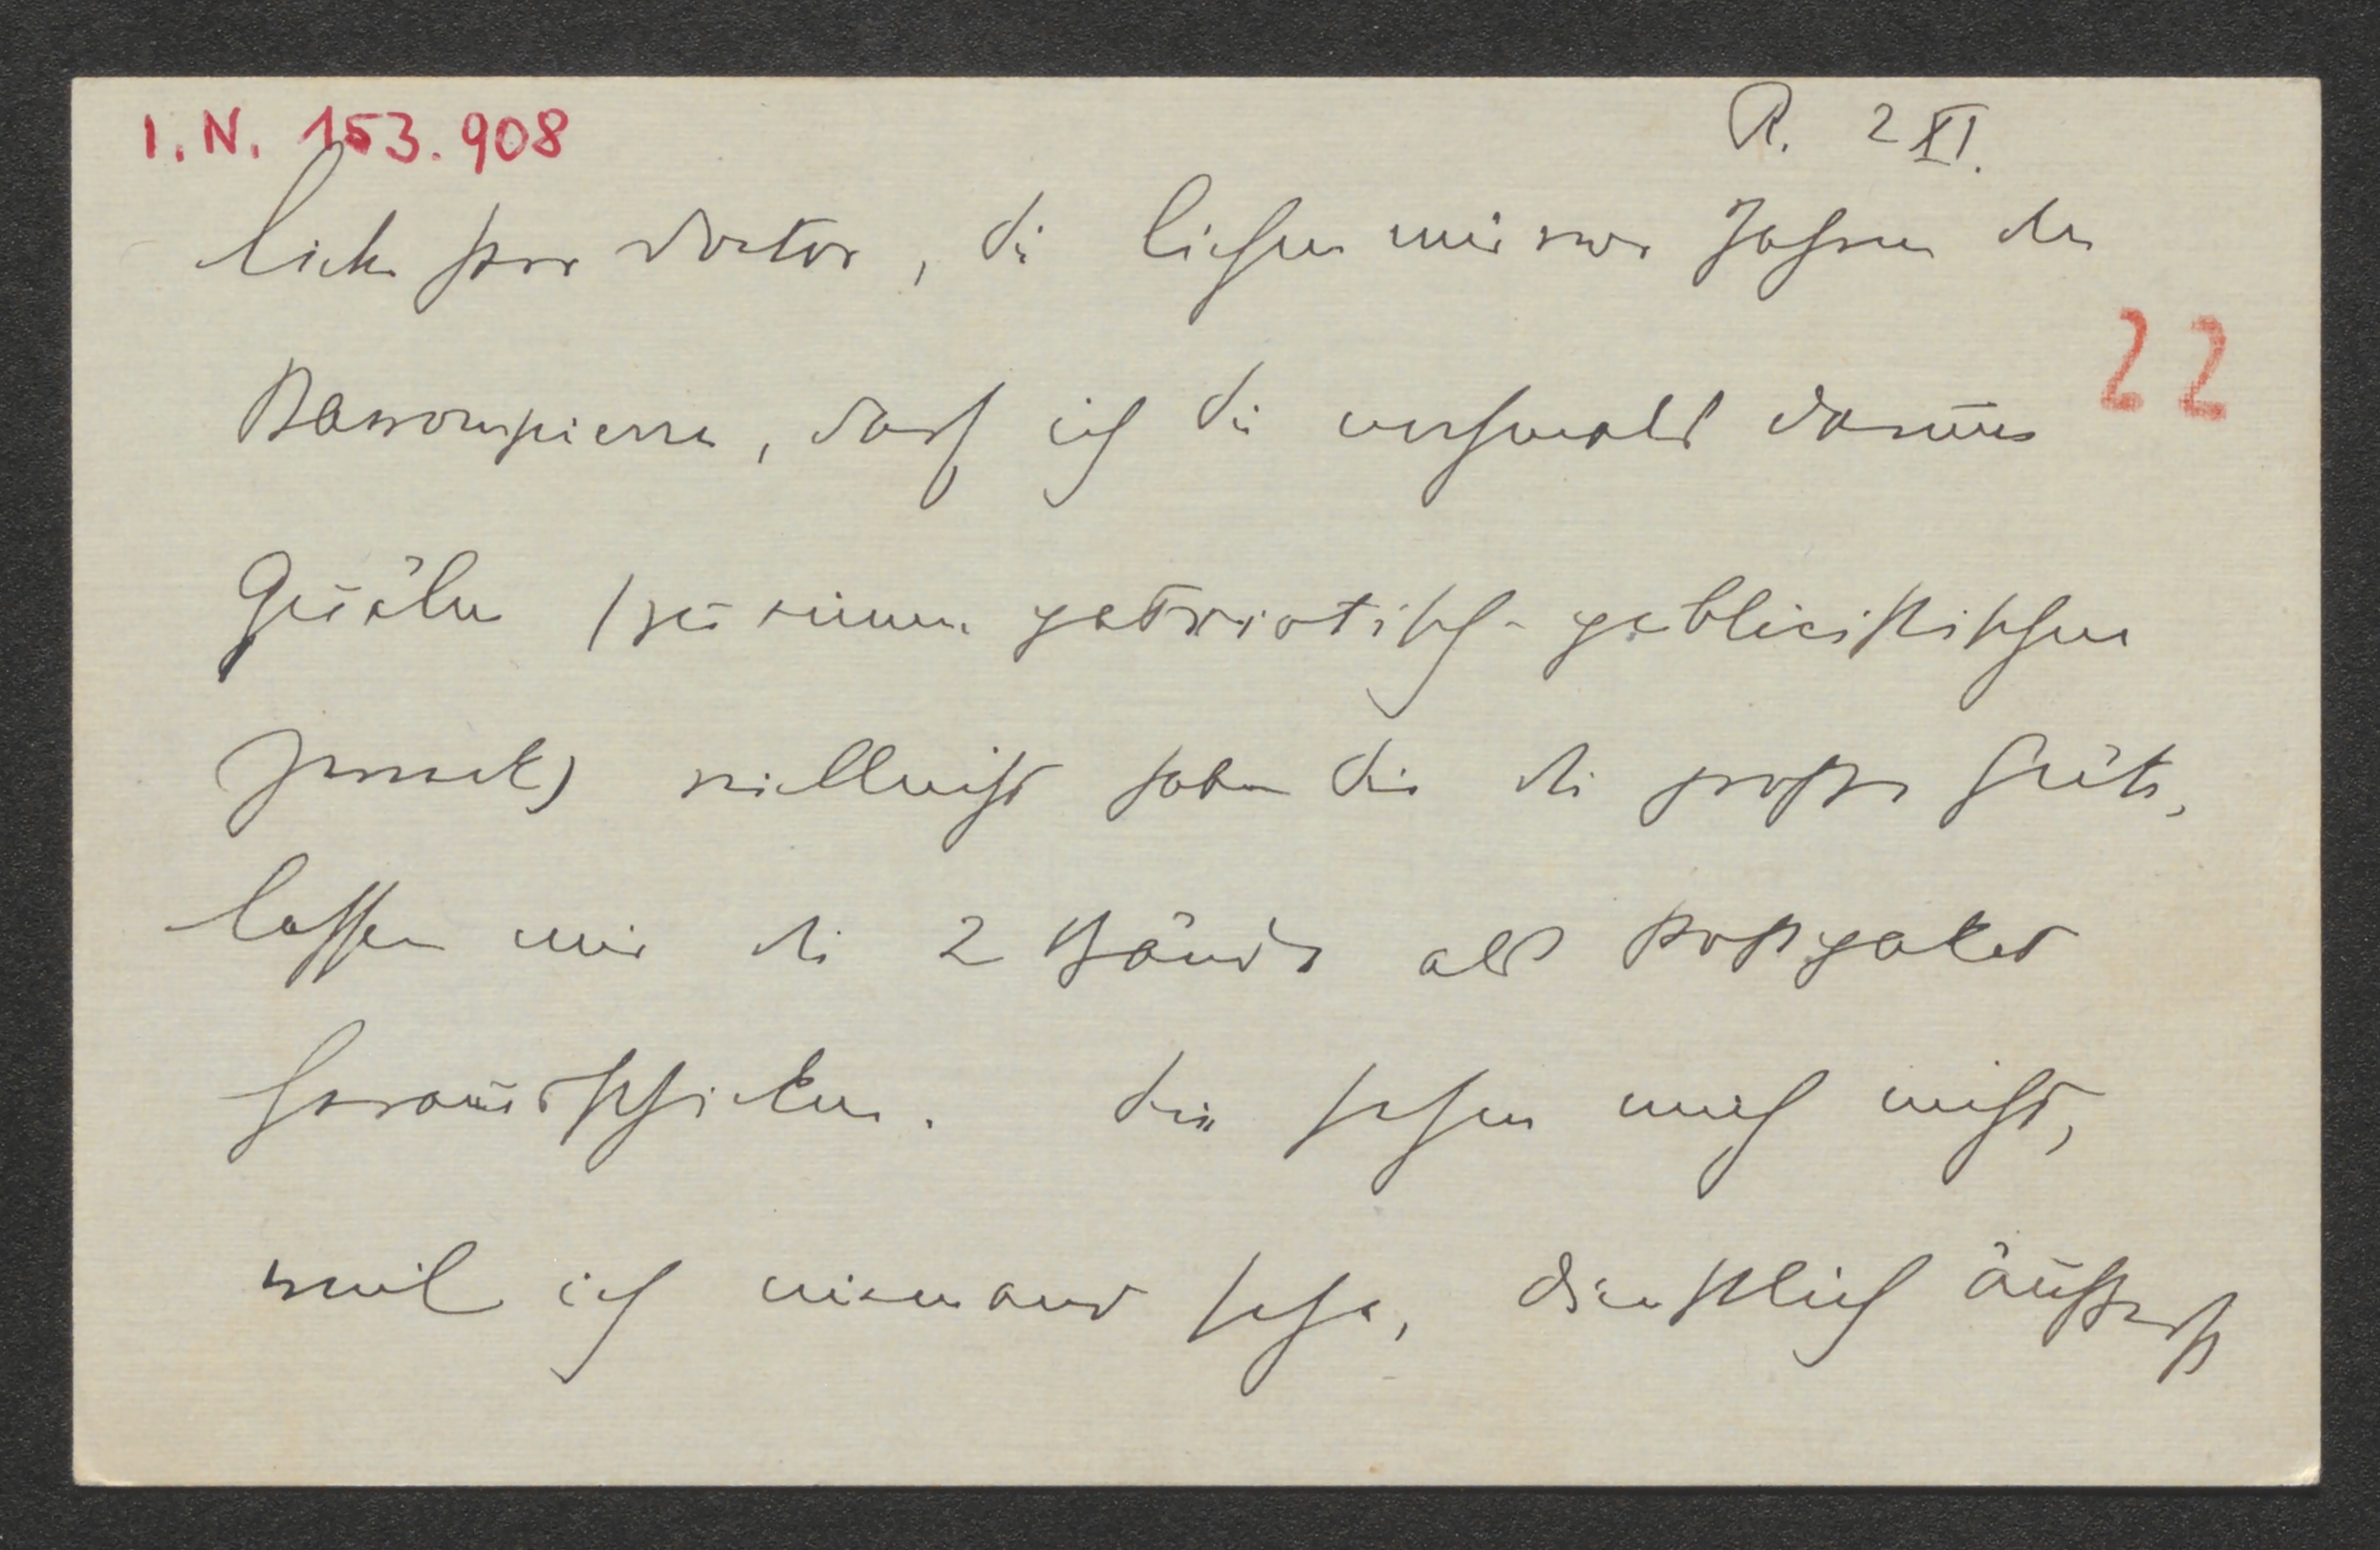 I.N. 153.908
R. 2 XI.
lieber Herr Doctor, Sie liehen mir vor Jahren den
22
Bassompierre, darf ich Sie nochmals darum
quälen (zu einem patriotisch-publicistischen
Zweck) vielleicht haben Sie die große Güte,
lassen mir die 2 Bände als Postpaket
herausschicken. Sie sehen mich nicht,
weil ich niemand sehe, dienstlich äußerst